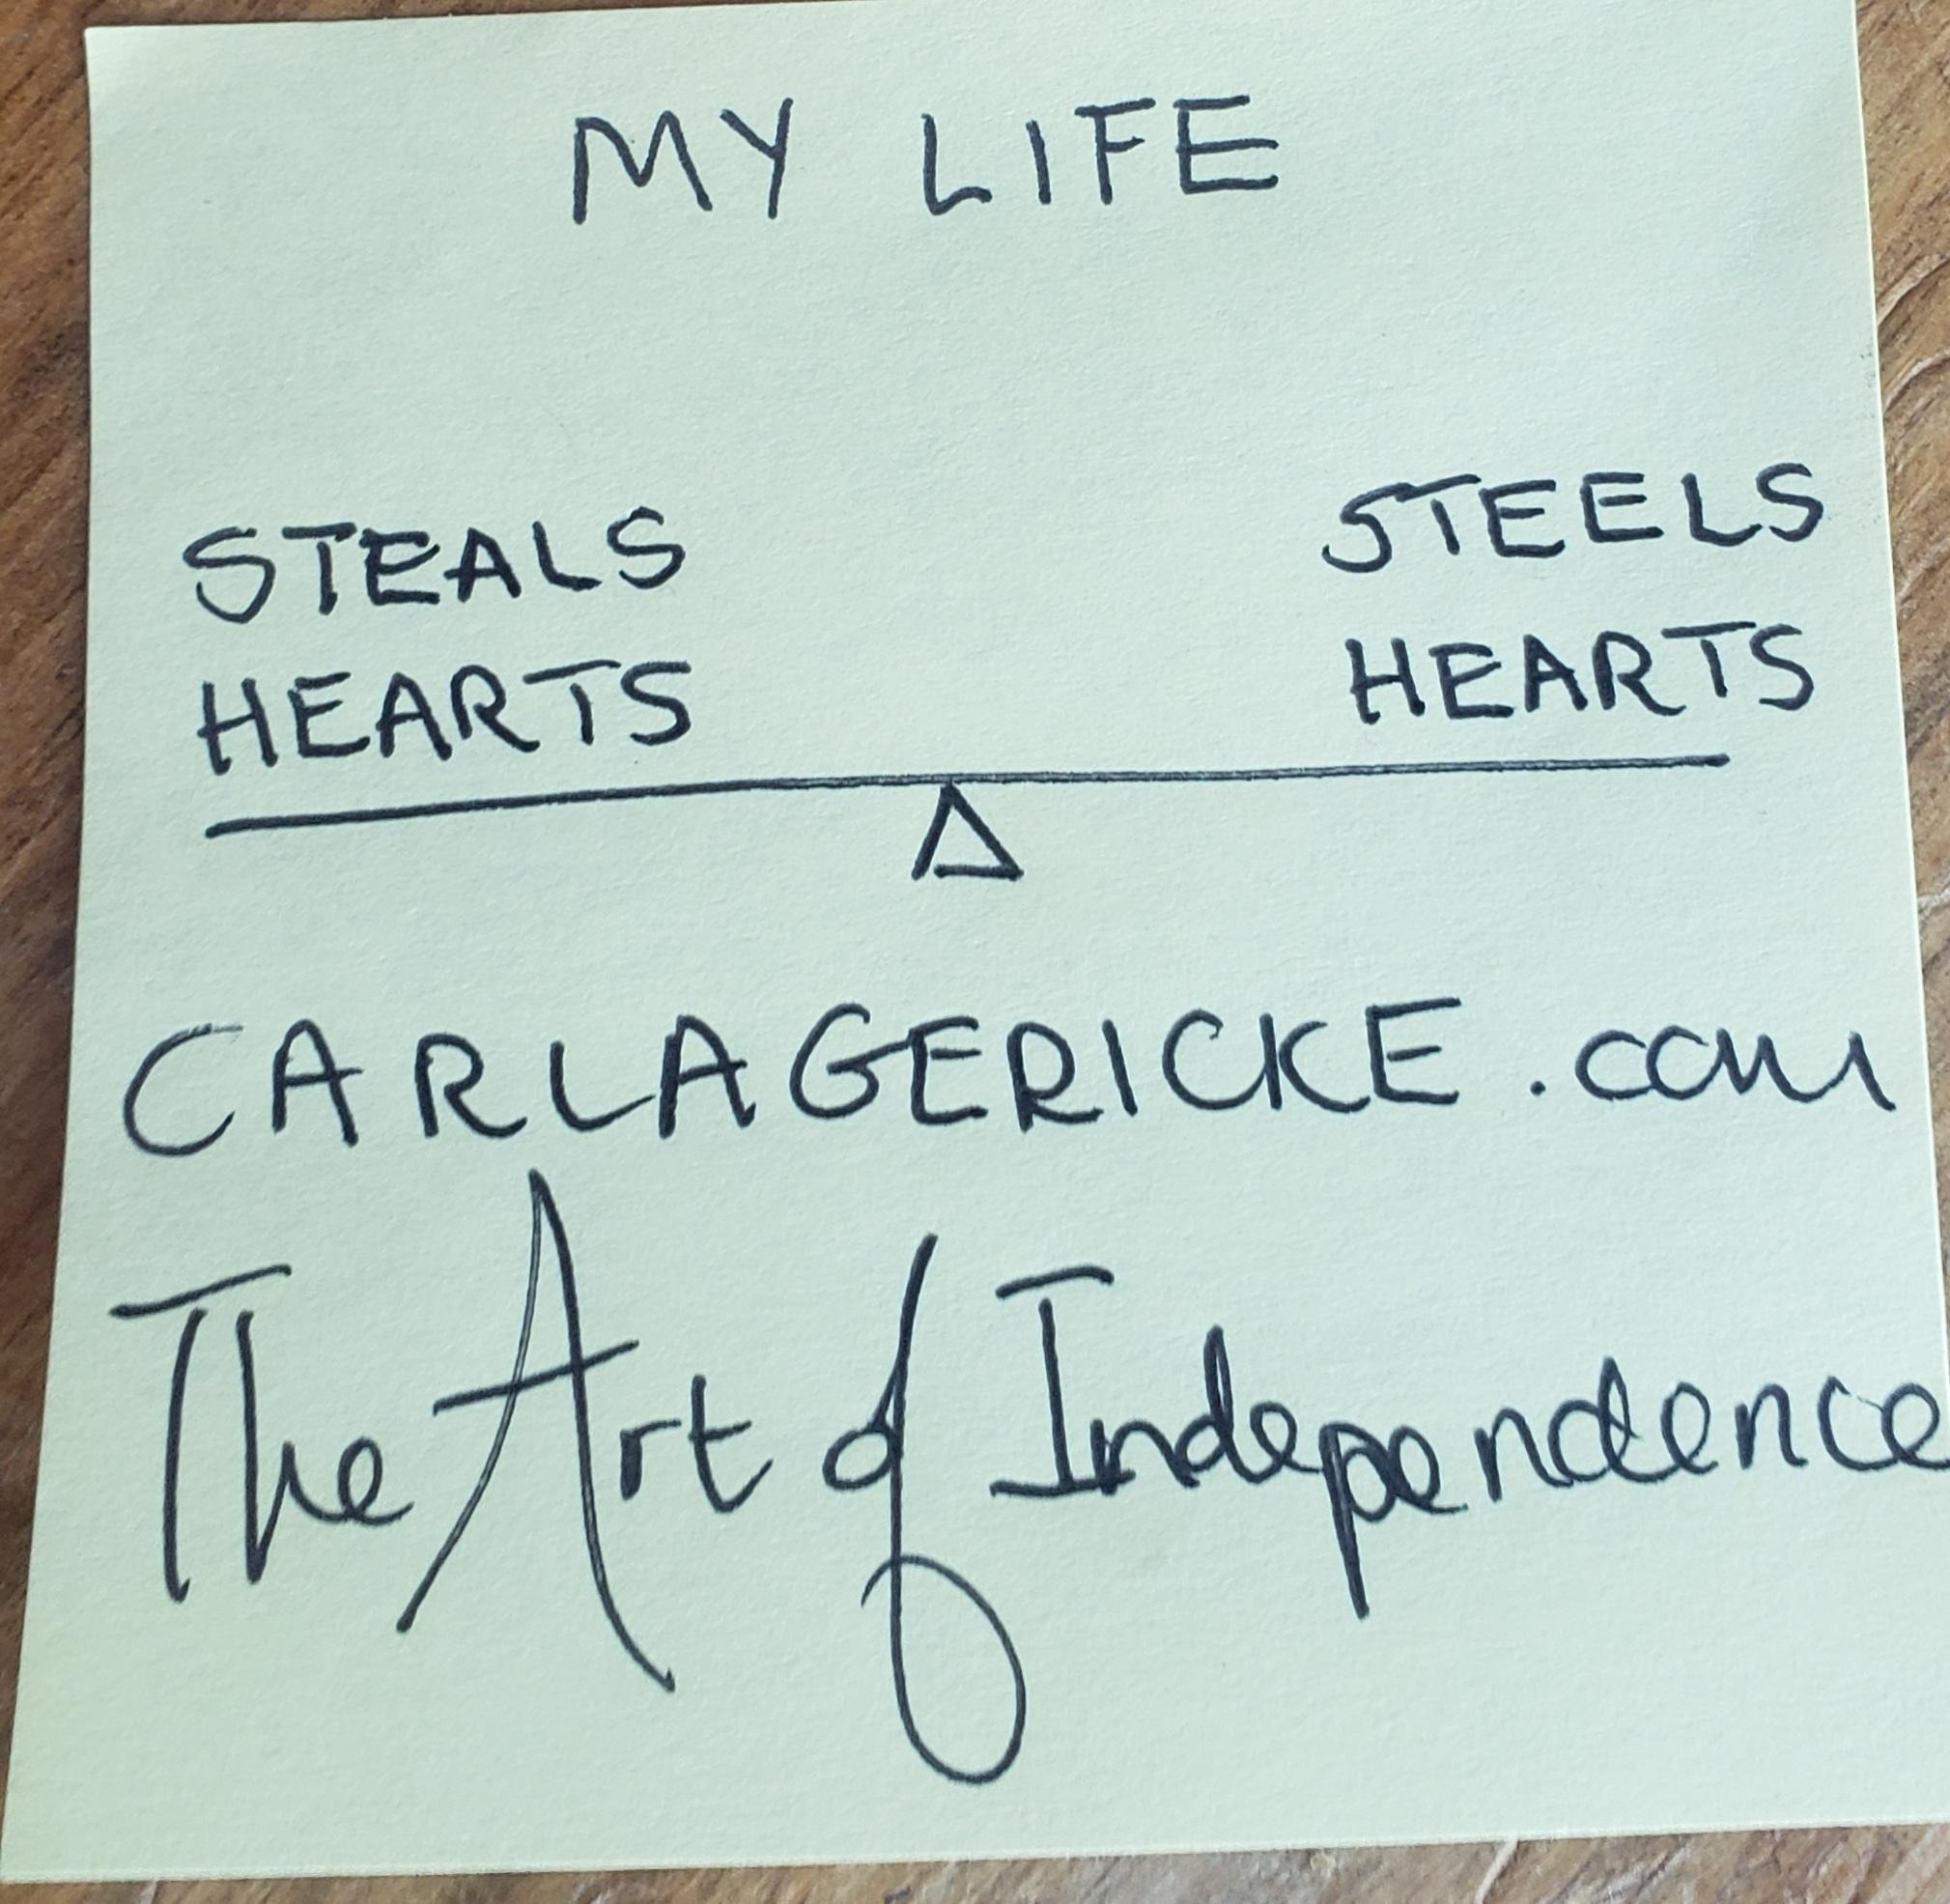 MY LIFE
STEALS STEELS
HEARTS HEARTS
CARLAGERICKE.com
The Art of Independence